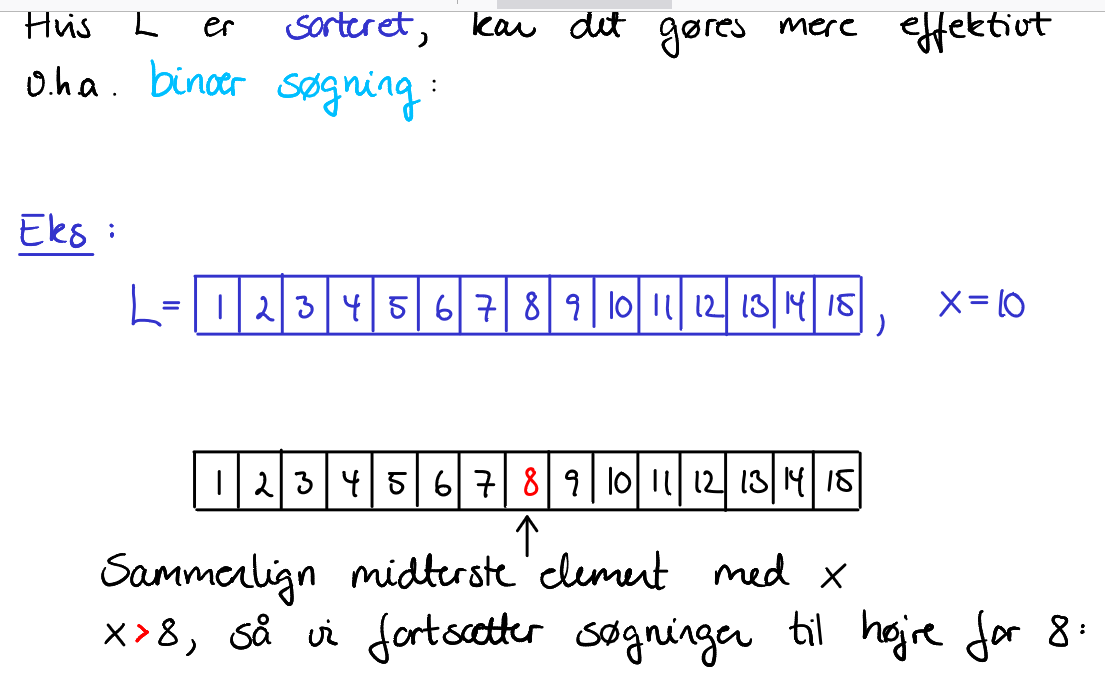 Hvis L er sorteret, kan det gøres mere effektivt
v.h.a. binær søgning:
Eks:
L= 1 2 3 4 5 6 7 8 9 10 11 12 13 14 15, x=10
1 2 3 4 5 6 7 8 9 10 11 12 13 14 15
Sammenlign midterste element med x
x>8, så vi fortsætter søgningen til højre for 8: